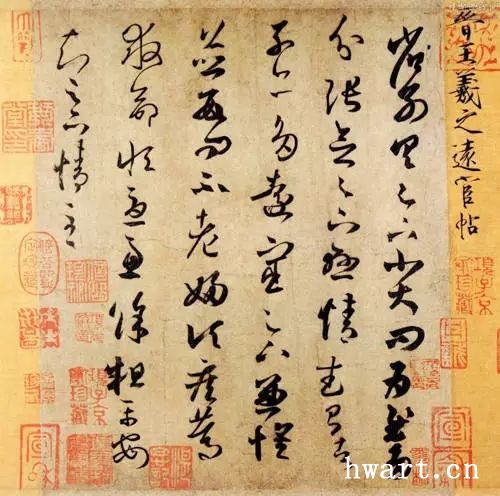 晉王羲之遠宦帖
省別具足下小大問為慰多
分張念足下懸情武昌諸
子亦多遠宦足下兼懷
並數問不老婦頃疾篤
救命恒憂慮餘粗平安
知足下情至
hwart.cn